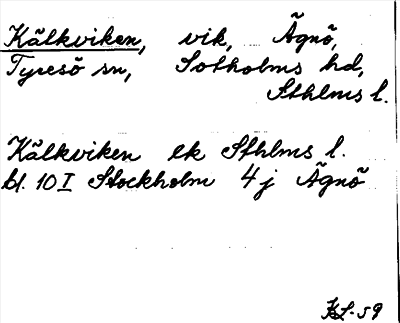 Kälkviken, vik, Ägnö,
Tyresö sn, Sotholms hd,
Sthlms l.
Kälkviken ek Sthlms l.
bl. 10 I Stockholm 4 j Ägnö